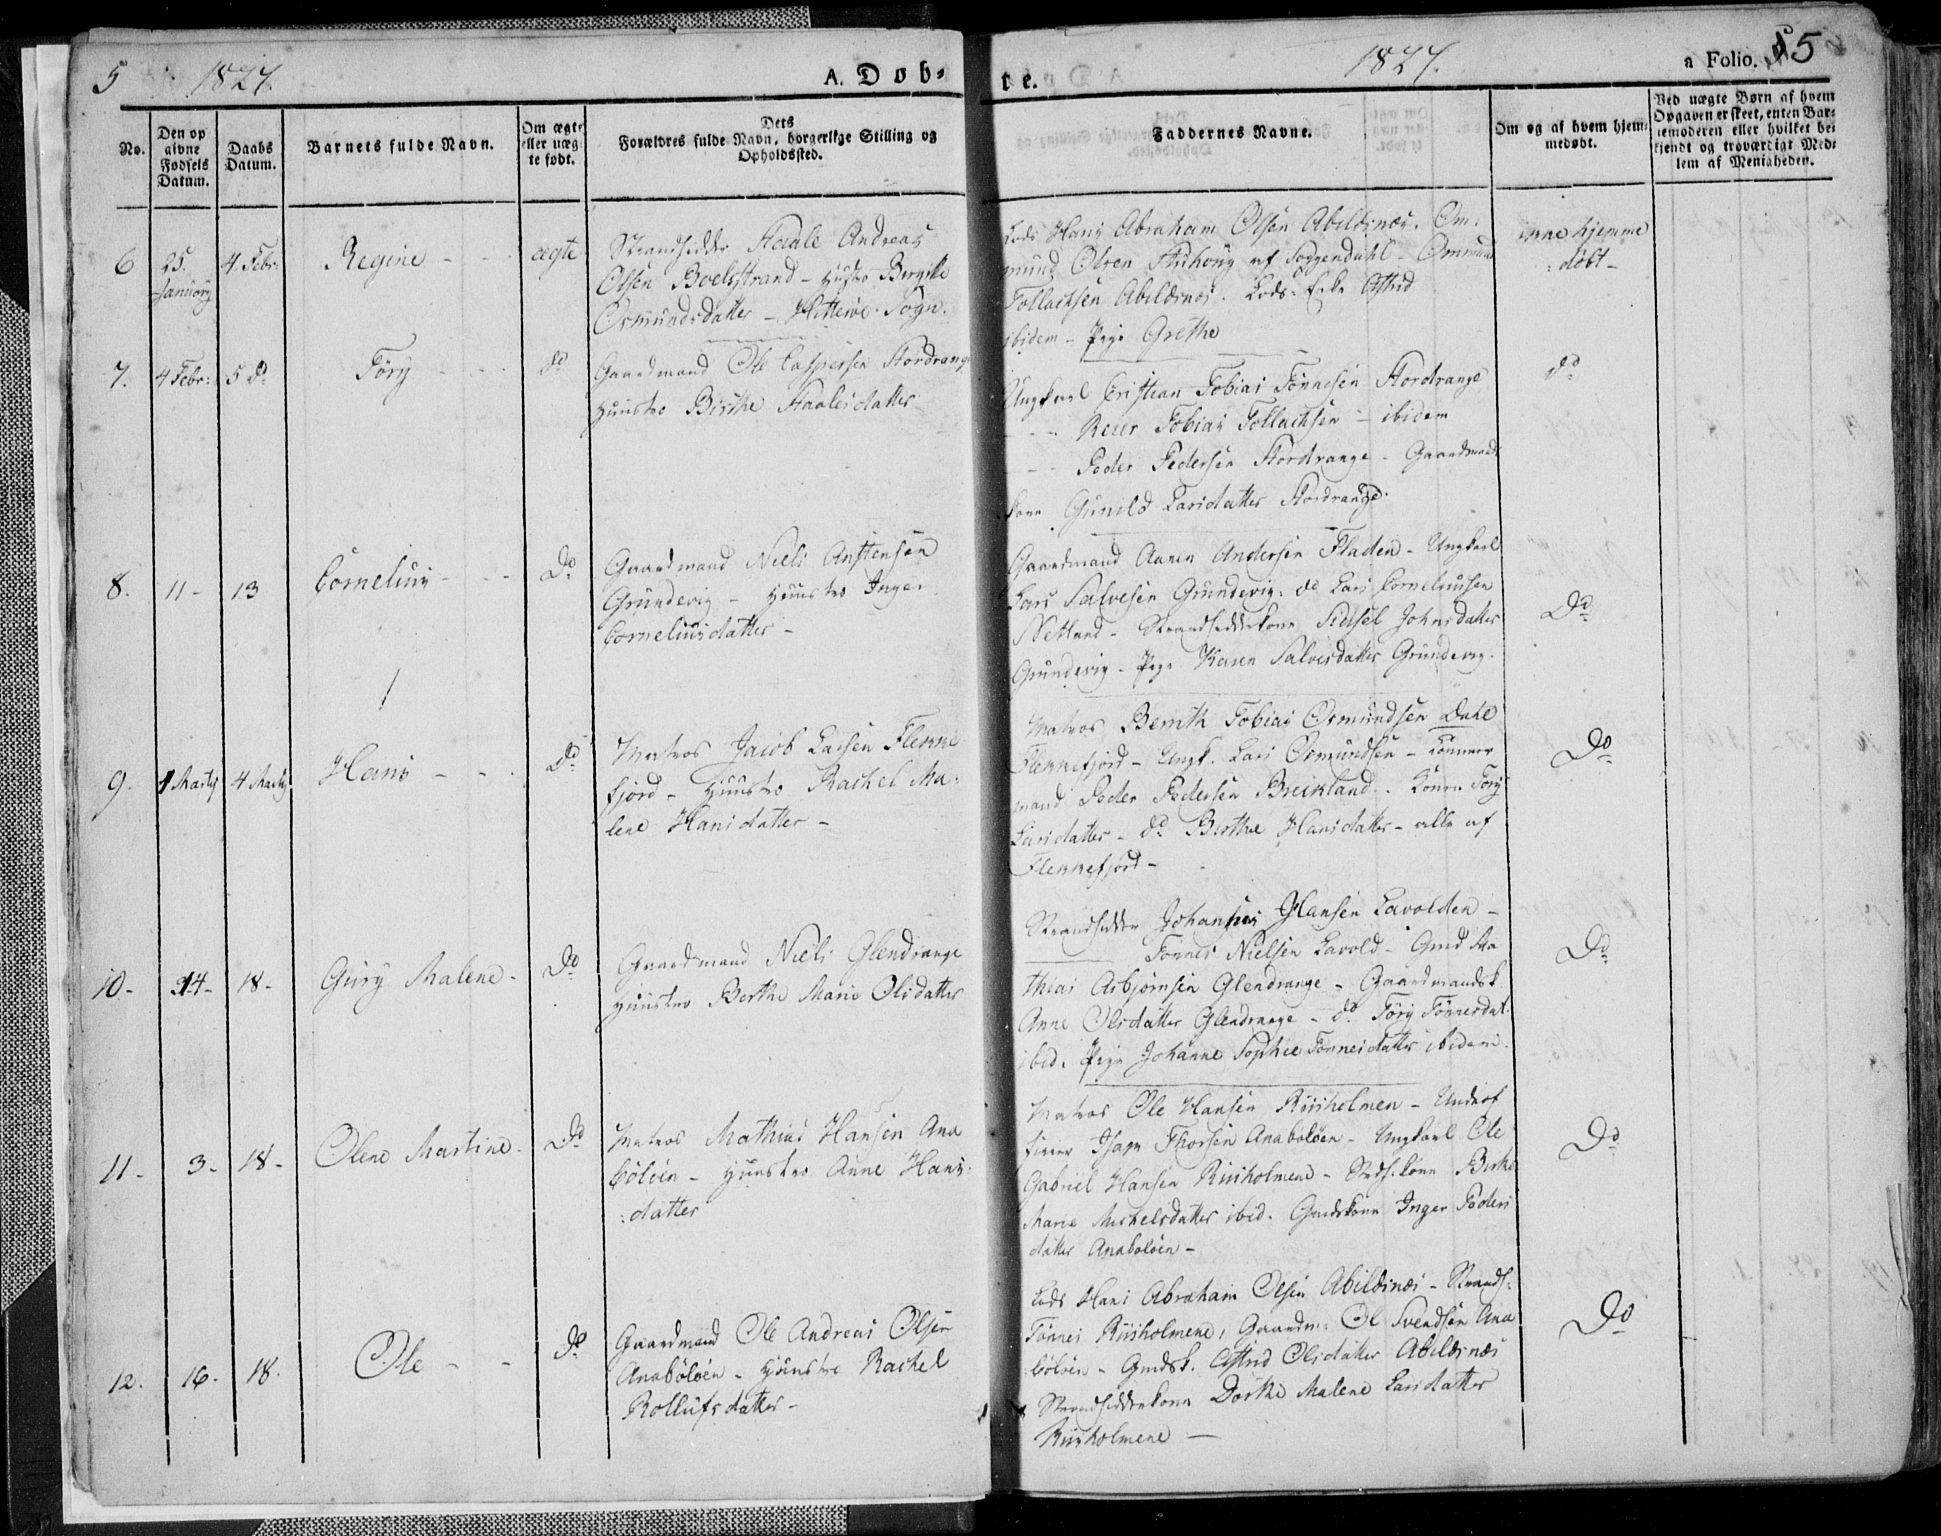 5 1827. A. Døb-
te. 1827. a Folio. 5
No.
Den opgivne Fødsels Datum.
Daabs Datum.
Barnets fulde Navn.
Om ægte eller uægte født.
Dets Forældres fulde Navn, borgerlige Stilling og Opholdssted.
Faddernes Navne.
Om og af hvem hjemmedøbt.
Ved uægte Børn af hvem Opgaven er skeet, enten Barnemoderen eller hvilket bekjendt og troværdigt Medlem af Menigheden.
6 25. January 4. Febr: Regine - - ægte
Strandsidder Staale Andreas
Olsen Boelsstrand - Hustro Bergitte
Osmundsdatter - Hitterøe Sogn.
Lods Hans Abraham Olsen Abildnæs. Om:
mund Olsen Stuhoug af Soggendahl - Ommund
Tollachsen Abildnæs. Lods: Enke Astrid
ibidem - Pige Grethe
inne hjemme
:døbt -
7. 4 Febr: 5 do Töry - - - do
Gaardmand Ole Caspersen Stordrange
Huustro Birthe Staalesdatter
Ungkarl Cristian Tobias Tönnesen Stordrange
- - - Reier Tobias Tollachsen - ibidem
- - - Peder Pedersen Stordrange - Gaardmands
kone Gunild Larsdatter Stordrange.
do
8. 11 - 13 Cornelius - - - Do
Gaardmand Niels Anstensen
Grundevig - Huustro Inger
Corneliusdatter -
Gaardmand Aanen Andersen Fladen - Ungkarl
Lars Salvesen Grundevig. do Lars Corneliussen
Netland - Strandsidderkone Sidsel Johnsdatter
Grundevig - Pige Karen Salvesdatter Grundevig.
Do
9. 1 Martz 4 Martz Hans - - - Do
Matros Jacob Larsen Flekke
fjord - Huustro Rachel Ma:
lene Hansdatter -
Matros Bernth Tobias Osmundsen Dahl
Flekkefjord - Ungk. Lars Osmundsen -
mand Peder Pedersen Breikland. Konen Töry
Larsdatter - do Birthe Hansdatter - alle af
Flekkefjord -
Do
10 - 14 - 18 - Gury Malene - Do
Gaardmand Niels Glendrange
Huustro Berthe Marie Olsdatter
Strandsidder Johannes Hansen Lavolden -
Tönnes Nielsen Lavold - Gmd Ma
thias Asbjörnsen Glendrange - Gaardmandsk
Anne Olsdatter Glendrange - do Töry Tönnesdat.
ibid. Pige Johanne Sophie Tönnesdatter ibidem.
Do
11 - 3 - 18 - Olene Martine - Do
Matros Mathias Hansen Ana
bölöen - Huustro Anne Hans:
:datter
Matros Ole Hansen Riisholmen - Underof
ficier Isaac Thorsen Anabölöen - Ungkarl Ole
Gabriel Hansen Riisholmene - Strds.kone Birthe
Marie Michelsdatter ibid. Gmdskone Inger Peders
datter Anabölöen -
Do
12. 16. 18. Ole - - Do
Gaardmand Ole Andreas Olsen
Anabölöen - Huustro Rachel
Rollufsdatter -
Lods Hans Abraham Olsen Abildnæs - Strands:
Tönnes Riisholmene, Gaardm: Ol Svendsen Ana
bölöen - Gmdsk. Astrid Olsdatter Abildnæs
Strandsidderkone Dorthe Malene Larsdatter
Riisholmene -
Do